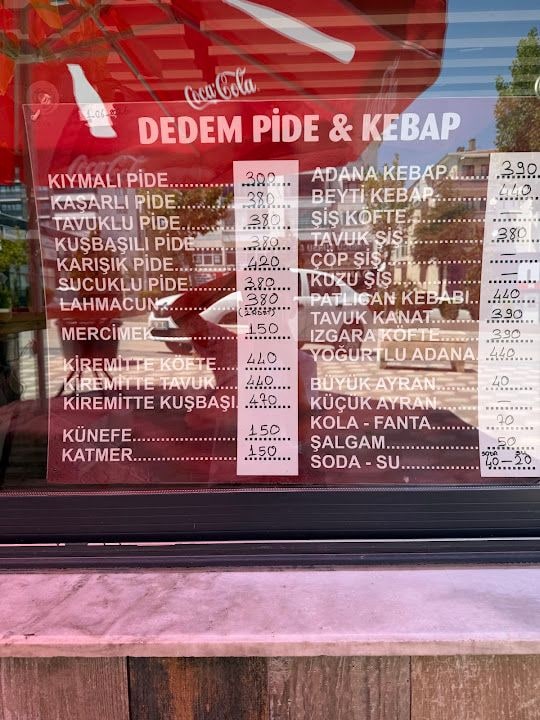 Coca-Cola
DEDEM PİDE & KEBAP
KIYMALI PİDE 300
KAŞARLI PİDE 380
TAVUKLU PİDE 380
KUŞBAŞILI PİDE 380
KARIŞIK PİDE 420
SUCUKLU PİDE 380
LAHMACUN 380
MERCİMEK 150
KİREMİTTE KÖFTE 440
KİREMİTTE TAVUK 440
KİREMİTTE KUŞBAŞI 470
KÜNEFE 150
KATMER 150
ADANA KEBAP 390
BEYTİ KEBAP 440
ŞİŞ KÖFTE —
TAVUK ŞİŞ 380
ÇÖP ŞİŞ —
KUZU ŞİŞ —
PATLICAN KEBABI 440
TAVUK KANAT 390
IZGARA KÖFTE 390
YOĞURTLU ADANA 440
BÜYÜK AYRAN 40
KÜÇÜK AYRAN —
KOLA - FANTA 70
ŞALGAM 50
SODA - SU SODA 40 — SU 20